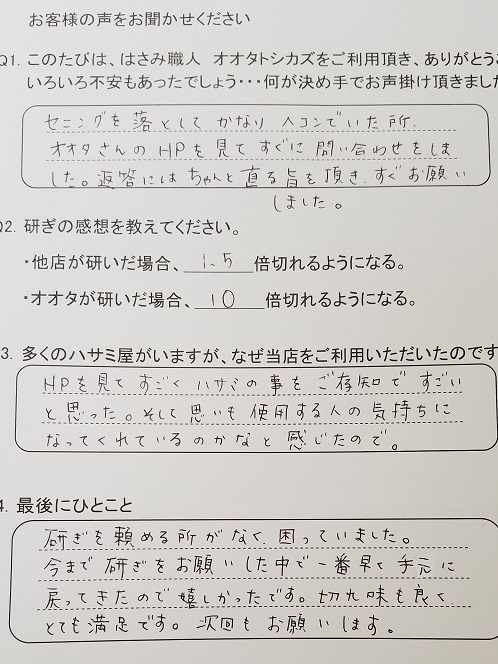 お客様の声をお聞かせください
Q1. このたびは、はさみ職人 オオタトシカズをご利用頂き、ありがとう
いろいろ不安もあったでしょう・・・何が決め手でお声掛け頂きまし
セニングを落としてかなりヘコンでいた所、
オオタさんのHPを見てすぐに問い合わせをしま
した。返答にはちゃんと直る旨を頂き、すぐお願い
しました。
Q2. 研ぎの感想を教えてください。
・他店が研いだ場合、1.5倍切れるようになる。
・オオタが研いだ場合、10倍切れるようになる。
3. 多くのハサミ屋がいますが、なぜ当店をご利用いただいたのです
HPを見てすごくハサミの事をご存知ですごい
と思った。そして思いも使用する人の気持ちに
なってくれているのかなと感じたので。
4. 最後にひとこと
研ぎを頼める所がなく、困っていました。
今まで研ぎをお願いした中で一番早く手元に
戻ってきたので嬉しかったです。切れ味も良く
とても満足です。次回もお願いします。